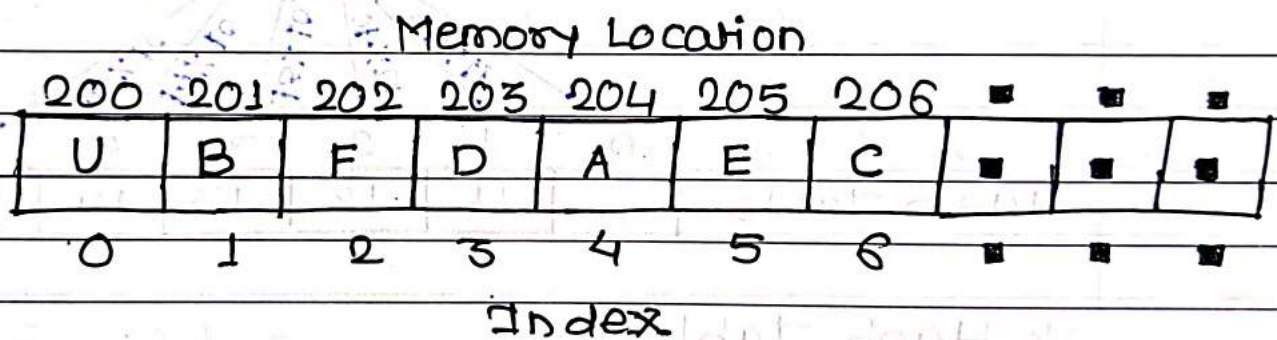 Memory Location
200 201 202 203 204 205 206 ▪ ▪ ▪
U B F D A E C ▪ ▪ ▪
0 1 2 3 4 5 6 ▪ ▪ ▪
Index